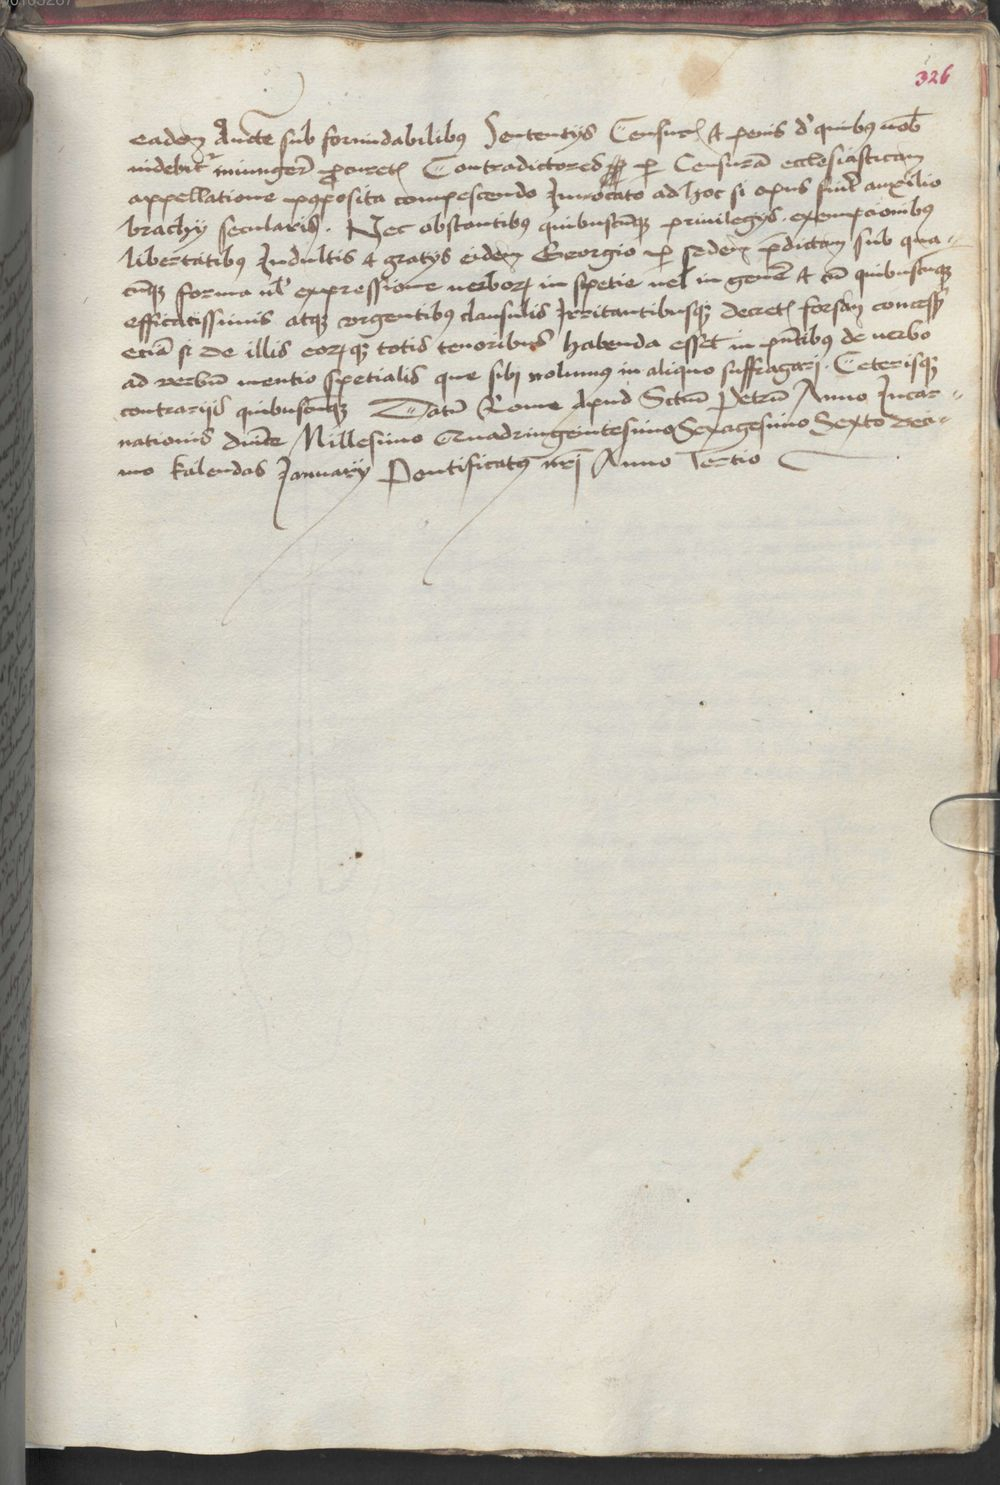 326
eadem Aucte sub formidabilibus Sententijs Censuris et penis de quibus vobis
videbitur iniungere procuretis Contradictores per Censuram ecclesiasticam
appellatione postposita compescendo Invocato ad hoc si opus fuerit auxilio
brachij secularis. Nec obstantibus quibuscumque privilegijs. exempcionibus
libertatibus Indultis et gratijs eidem Georgio per sedem predictam sub qua-
cumque forma vel expressione verborum in spetie vel in genere et cum quibuscumque
efficatissimis atque vrgentibus clausulis Irritantibusque decretis forsan concessis
eciam si de illis eorumque totis tenoribus habenda esset in presentibus de verbo
ad verbum mentio spetialis que sibj nolumus in aliquo suffragarj. Ceterisque
contrarijs quibuscumque Datum Rome Apud Sanctum Petrum Anno Incar-
nationis divine Millesimo Quadringentesimo Sexagesimo Sexto deci-
mo kalendas Januarij Pontificatus nostrj Anno Tertio